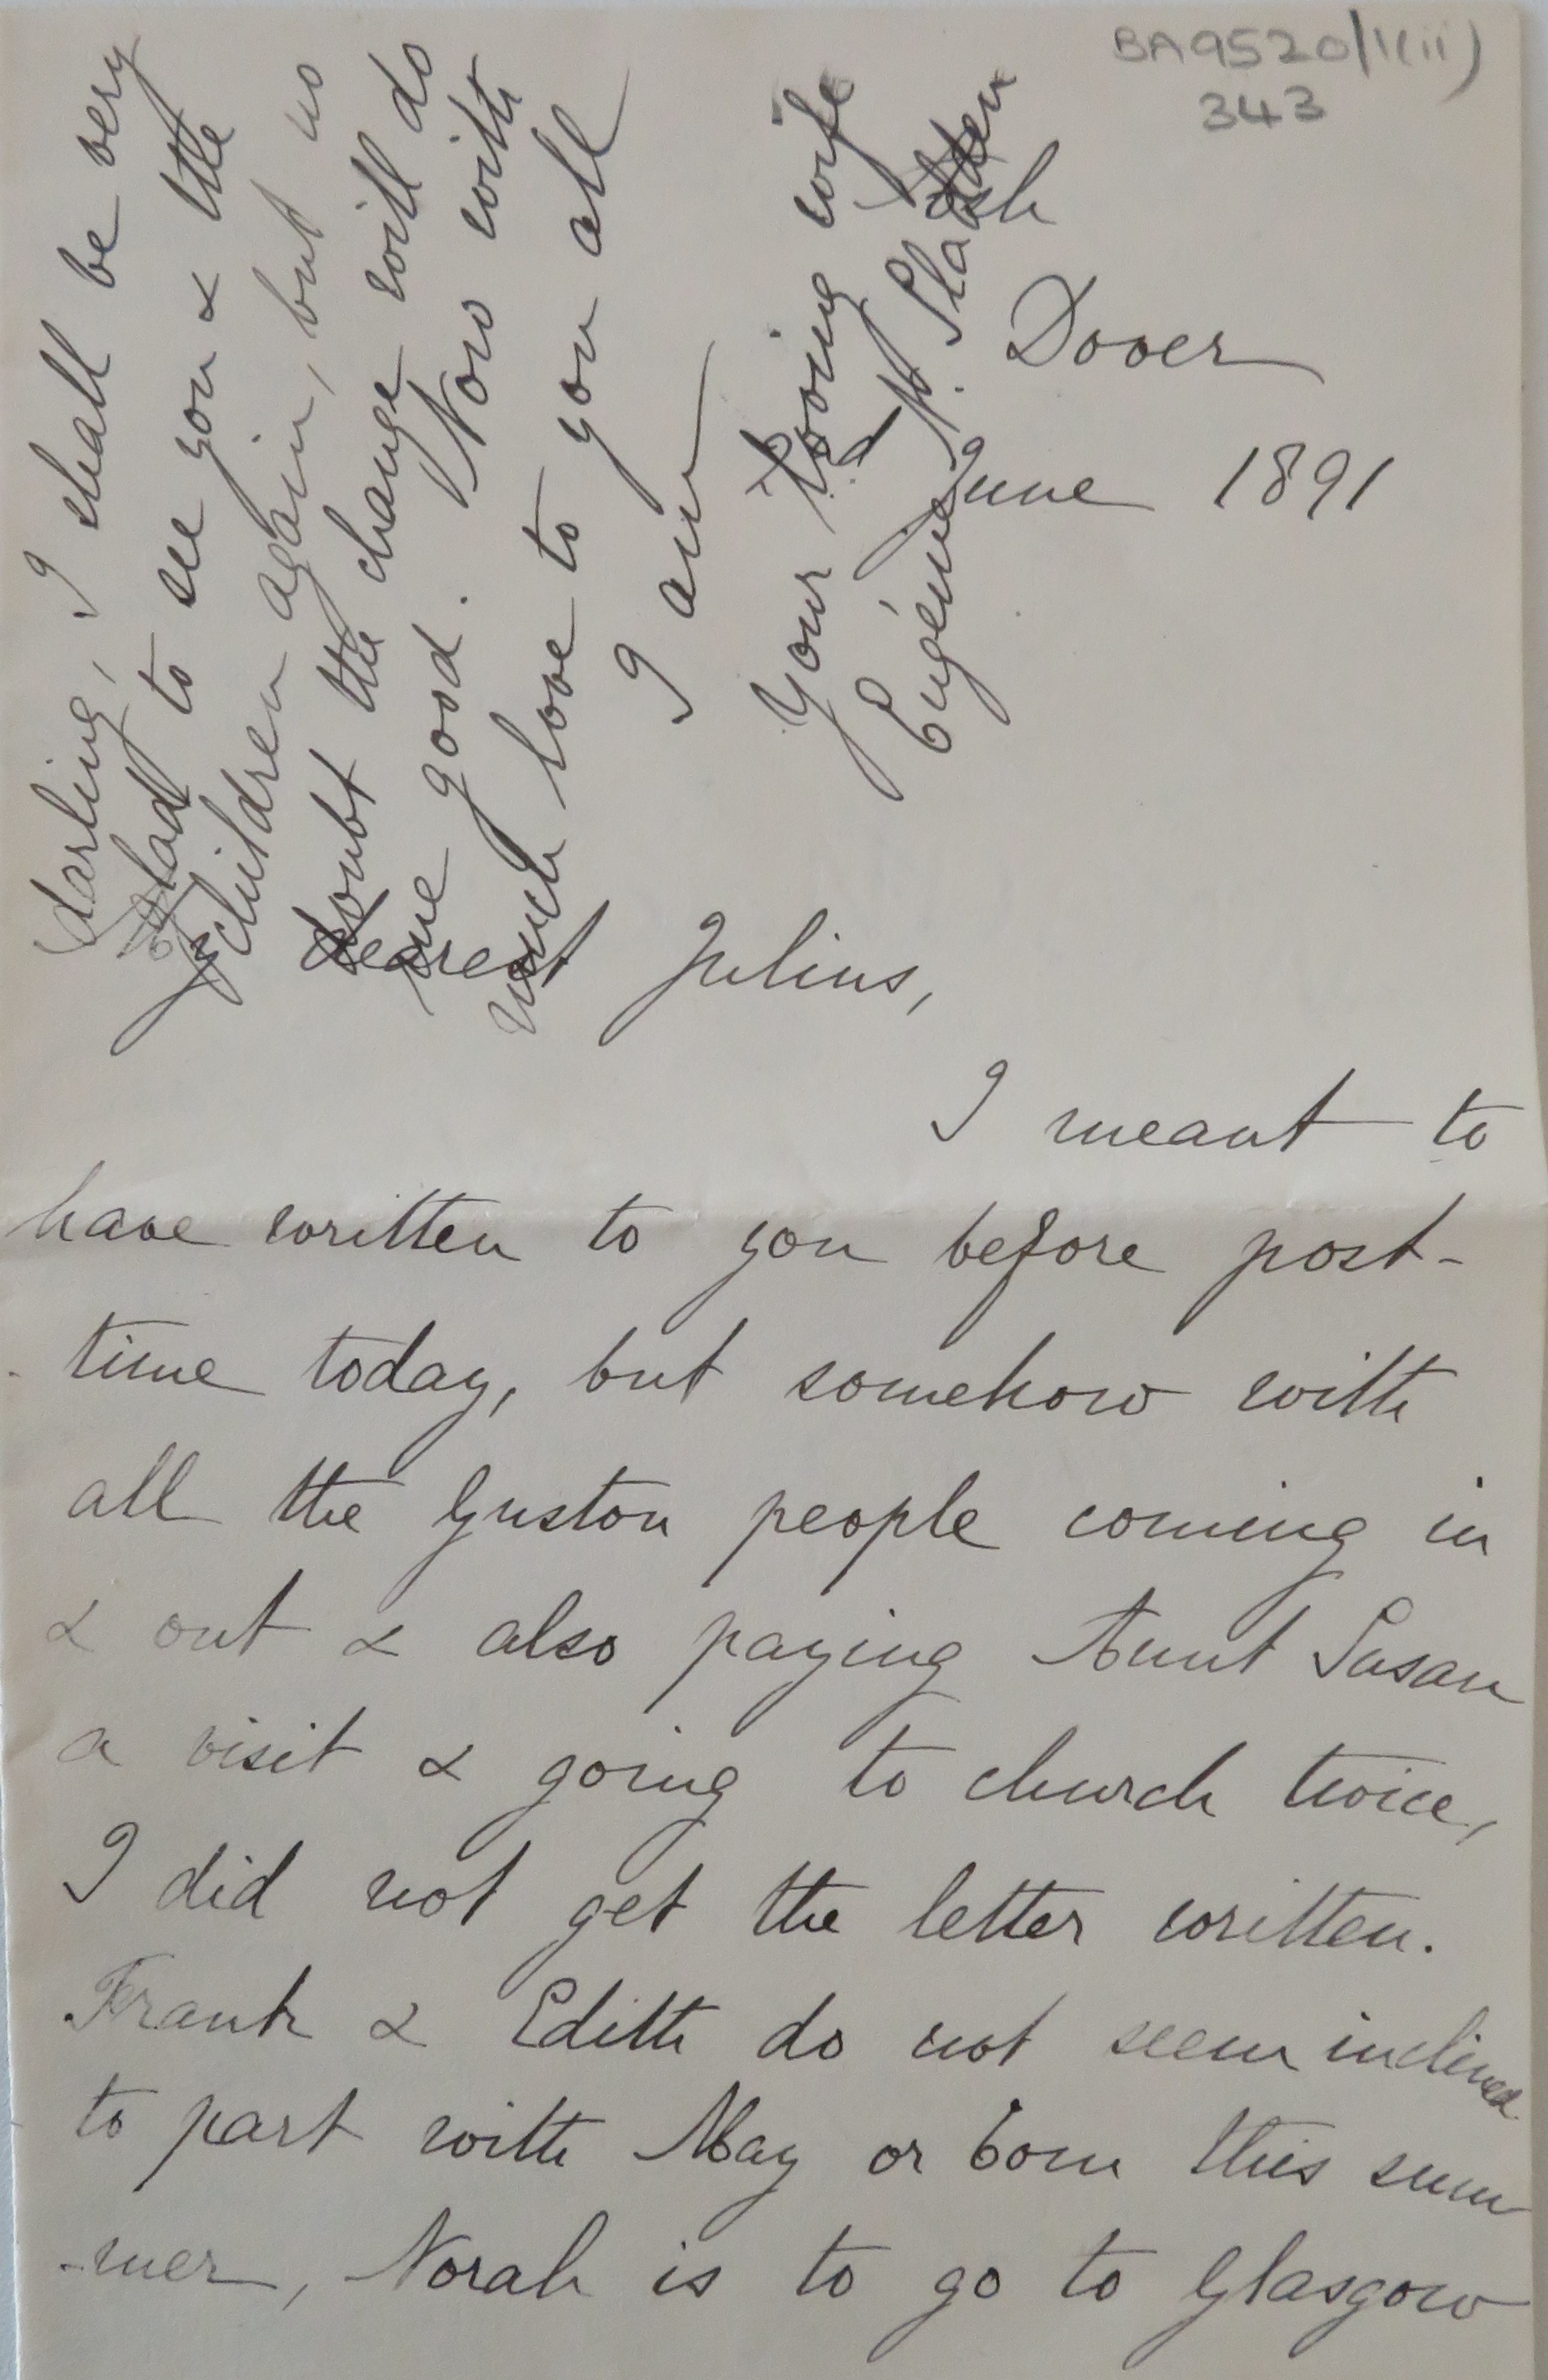 BA9520/1(ii)
343
Dover
June 1891
dearest Julius,
I meant to
have written to you before post-
time today, but somehow with
all the Guston people coming in
& out & also paying Aunt Susan
a visit & going to church twice,
I did not get the letter written.
Frank & Edith do not seem inclined
to part with May or Tom this sum
-mer, Norah is to go to Glasgow
darling, I shall be very
glad to see you & the
children again, but no
doubt the change will do
me good. Now with
much love to you all
I am
Your loving wife
Eugénie